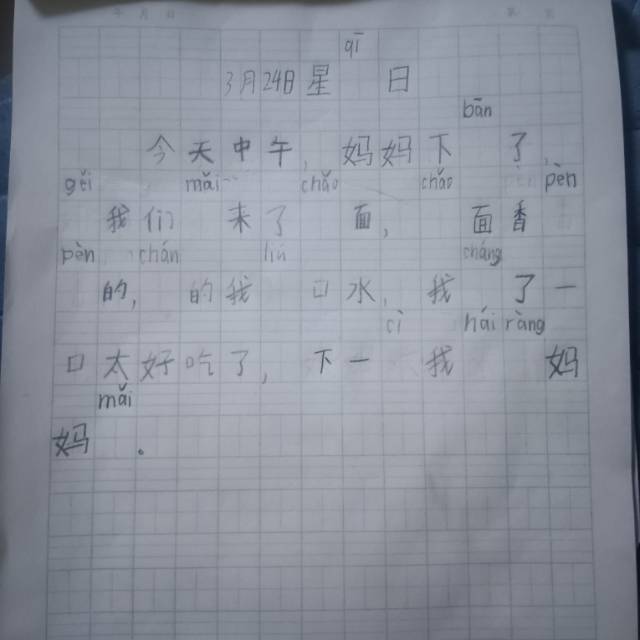 年 月 日 第 页
qī
3月24日星 日
bān
今天中午，妈妈下 了，
gěi mǎi chǎo chǎo pèn
我们 来了 面， 面香
pèn chán liú cháng
的， 的我 口水，我 了一
cì hái ràng
口太好吃了，下一 我 妈
mǎi
妈 。